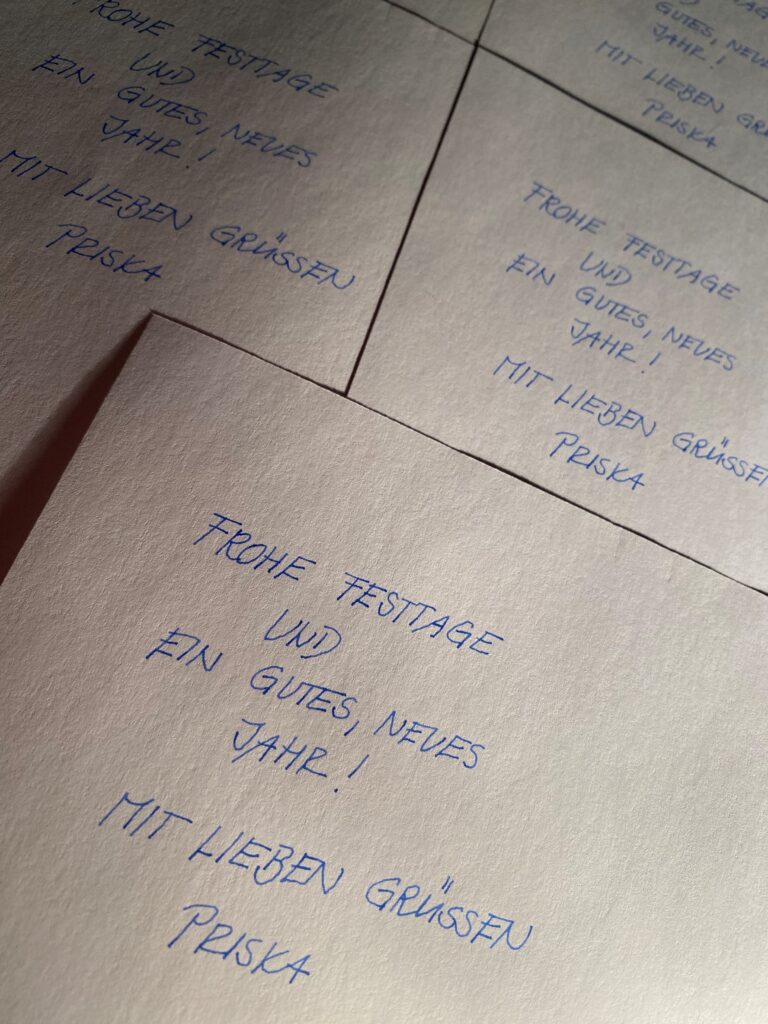 FROHE FESTTAGE
UND
EIN GUTES, NEUES
JAHR!
MIT LIEBEN GRÜSSEN
PRISKA
GUTES, NEUE
JAHR!
MIT LIEBEN
PRISKA
FROHE FESTTAGE
UND
EIN GUTES, NEUES
JAHR!
MIT LIEBEN GRÜSSEN
PRISKA
FROHE FESTTAGE
UND
EIN GUTES, NEUES
JAHR!
MIT LIEBEN GRÜSSEN
PRISKA